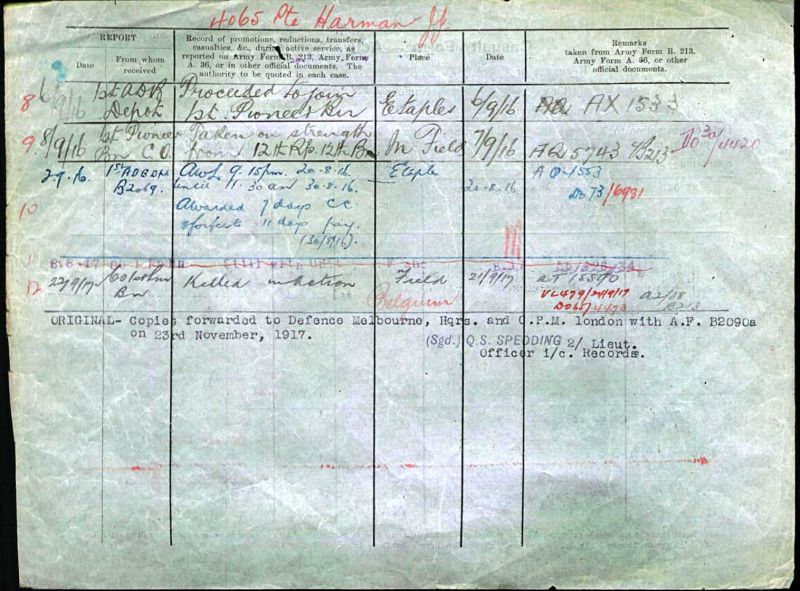 4065 Pte Harman J.J.
REPORT
Date
From whom received
Record of promotions, reductions, transfers,
casualties, &c., during active service, as
reported on Army Form B. 213, Army Form
A. 36, or in other official documents. The
authority to be quoted in each case.
Place
Date
Remarks
taken from Army Form B. 213,
Army Form A. 36, or other
official documents.
8 6/9/16 1st ADBD Proceeded to join
Depot 1st Pioneer Bn Etaples 6/9/16 AX 1533
9 8/9/16 1st Pioneer Taken on strength
Bn C.O. from 12th Rfs. 12th Bn In Field 7/9/16 AQ 5743 B213
2.9.16 1st ADBD AWL 9.15pm. 20.8.16 Etaples
B2069. until 11.30am 30.8.16. 20.8.16
10 Awarded 7 days CC
forfeits 11 days pay.
DO 73/6981
11
12 22/9/17 Co 1st Pnr Killed in action Field 21/9/17
Bn Belgium
ORIGINAL- Copies forwarded to Defence Melbourne, Hqrs. and C.P.M. london with A.F. B2090a
on 23rd November, 1917.
(Sgd.) Q.S. SPEDDING 2/ Lieut.
Officer i/c. Records.